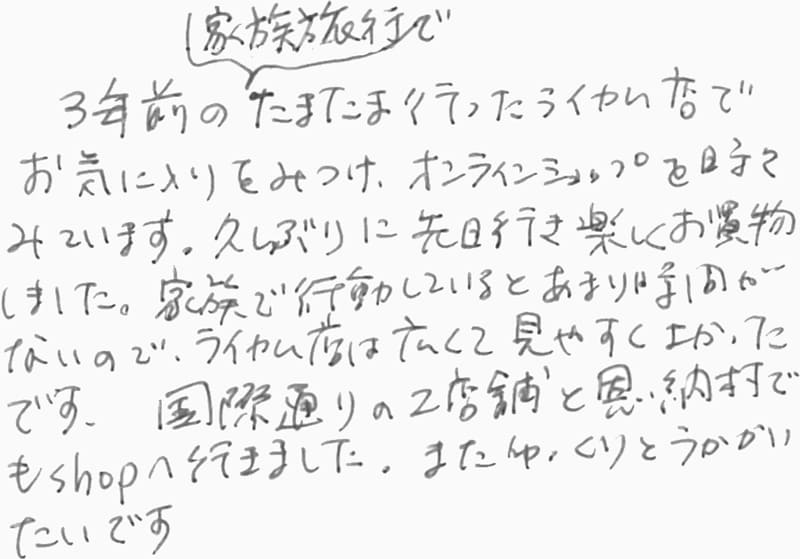 家族旅行で
3年前のたまたま行ったライカム店で
お気に入りをみつけ、オンラインショップを時々
みています。久しぶりに先日行き楽しくお買物
しました。家族で行動しているとあまり時間が
ないので、ライカム店は広くて見やすくよかった
です。国際通りの2店舗と恩納村で
もshopへ行きました。またゆっくりとうかがい
たいです